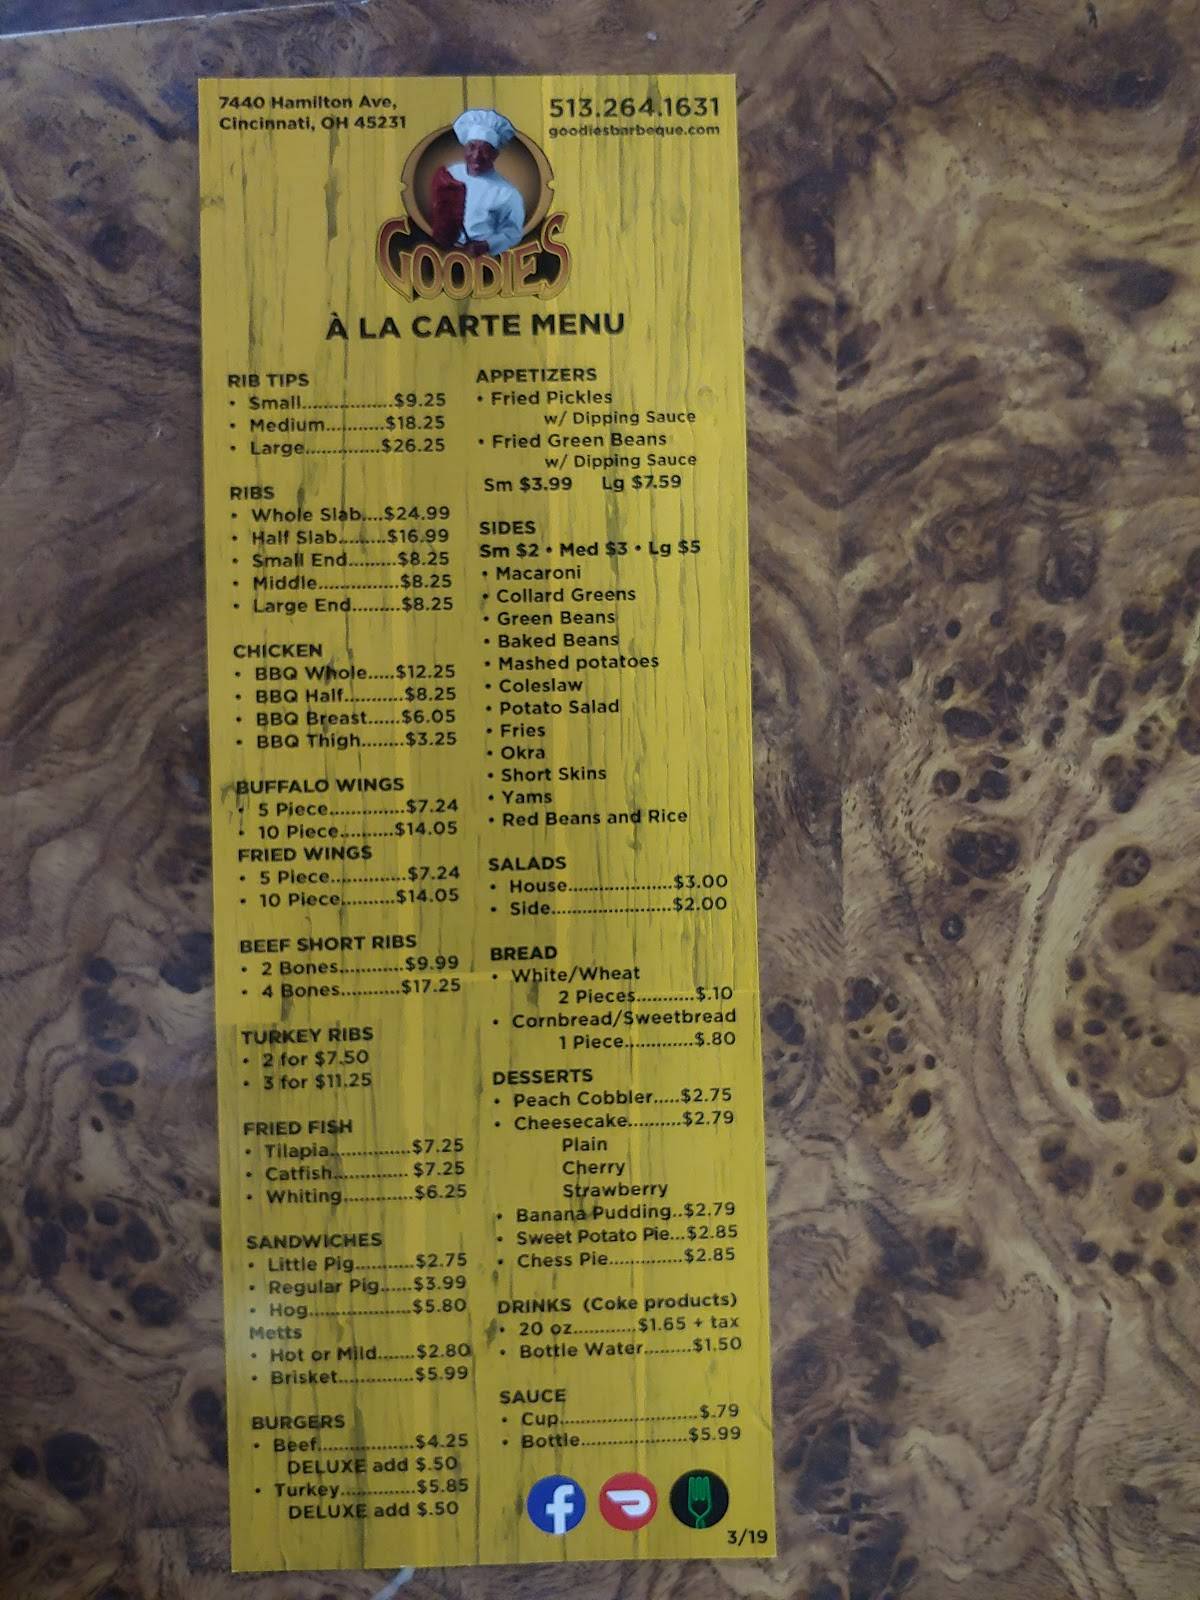 7440 Hamilton Ave,
Cincinnati, OH 45231
513.264.1631
goodiesbarbeque.com
GOODIES
À LA CARTE MENU
RIB TIPS
• Small..................$9.25
• Medium...........$18.25
• Large...............$26.25
RIBS
• Whole Slab....$24.99
• Half Slab.........$16.99
• Small End..........$8.25
• Middle................$8.25
• Large End.........$8.25
CHICKEN
• BBQ Whole.....$12.25
• BBQ Half............$8.25
• BBQ Breast......$6.05
• BBQ Thigh........$3.25
BUFFALO WINGS
• 5 Piece...............$7.24
• 10 Piece..........$14.05
FRIED WINGS
• 5 Piece...............$7.24
• 10 Piece..........$14.05
BEEF SHORT RIBS
• 2 Bones............$9.99
• 4 Bones...........$17.25
TURKEY RIBS
• 2 for $7.50
• 3 for $11.25
FRIED FISH
• Tilapia................$7.25
• Catfish.............. $7.25
• Whiting..............$6.25
SANDWICHES
• Little Pig...........$2.75
• Regular Pig......$3.99
• Hog....................$5.80
Metts
• Hot or Mild.......$2.80
• Brisket..............$5.99
BURGERS
• Beef...................$4.25
DELUXE add $.50
• Turkey..............$5.85
DELUXE add $.50
APPETIZERS
• Fried Pickles
w/ Dipping Sauce
• Fried Green Beans
w/ Dipping Sauce
Sm $3.99 Lg $7.59
SIDES
Sm $2 • Med $3 • Lg $5
• Macaroni
• Collard Greens
• Green Beans
• Baked Beans
• Mashed potatoes
• Coleslaw
• Potato Salad
• Fries
• Okra
• Short Skins
• Yams
• Red Beans and Rice
SALADS
• House....................$3.00
• Side.......................$2.00
BREAD
• White/Wheat
2 Pieces...........$.10
• Cornbread/Sweetbread
1 Piece.............$.80
DESSERTS
• Peach Cobbler.....$2.75
• Cheesecake..........$2.79
Plain
Cherry
Strawberry
• Banana Pudding..$2.79
• Sweet Potato Pie...$2.85
• Chess Pie..............$2.85
DRINKS (Coke products)
• 20 oz............$1.65 + tax
• Bottle Water.........$1.50
SAUCE
• Cup...........................$.79
• Bottle.....................$5.99
3/19